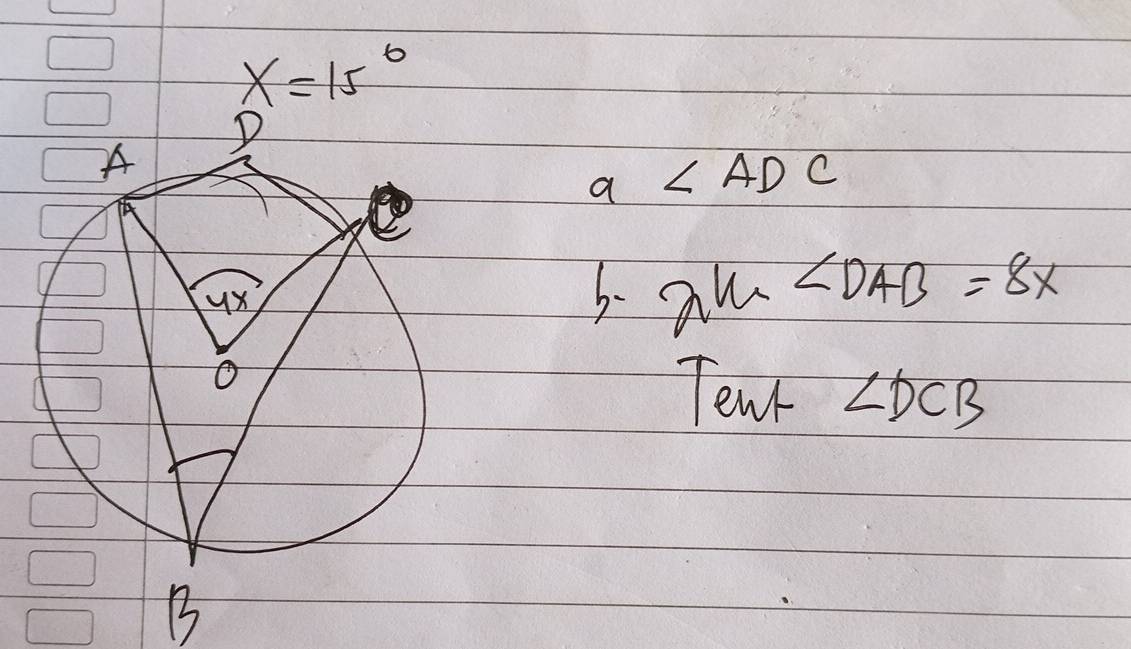 X = 15°
D
A
C
4x
O
B
a ∠ADC
b. jk ∠DAB = 8x
Tent ∠DCB